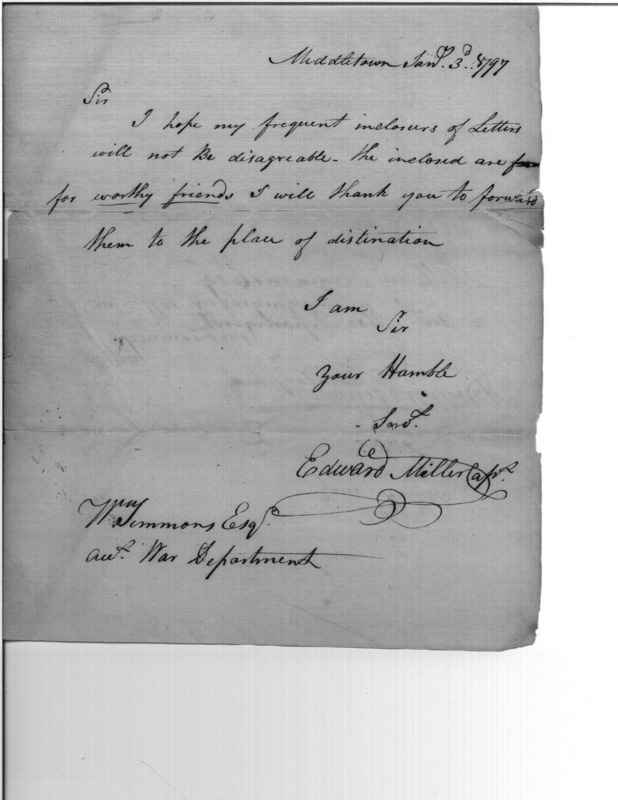 Middletown Jany. 3d. 1797
Sir
I hope my frequent inclosurs of Letters
will not Be disagreable - the inclosed are
for worthy friends I will thank you to forward
them to the place of distination
I am
Sir
your Humble
Servt.
Edward Miller Capt.
Wm Simmons Esqr.
acct. War Department